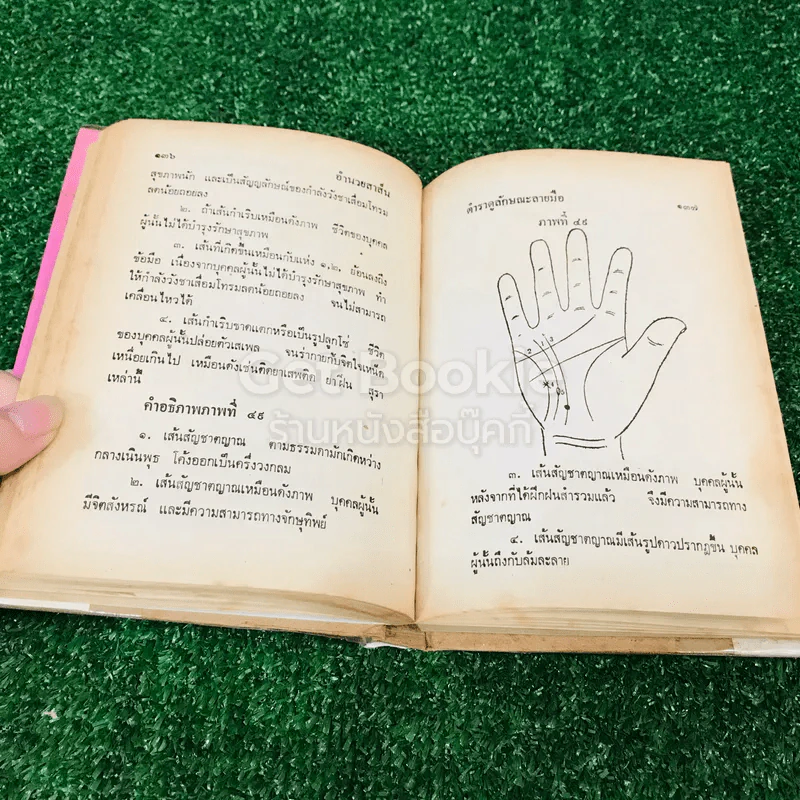 ๑๓๖
อำนวยสาส์น
สุขภาพนัก และเป็นสัญญลักษณ์ของกำลังวังชาเสื่อมโทรม
ลดน้อยถอยลง
๒. ถ้าเส้นกำเริบเหมือนดังภาพ ชีวิตของบุคคล
ผู้นั้นไม่ได้บำรุงรักษาสุขภาพ
๓. เส้นที่เกิดขึ้นเหมือนกับแห่ง ๑,๒. ย้อนลงถึง
ข้อมือ เนื่องจากบุคคลผู้นั้นไม่ได้บำรุงรักษาสุขภาพ ทำ
ให้กำลังวังชาเสื่อมโทรมลดน้อยถอยลง จนไม่สามารถ
เคลื่อนไหวได้
๔. เส้นกำเริบขาดแตกหรือเป็นรูปลูกโซ่ ชีวิต
ของบุคคลผู้นั้นปล่อยตัวเสเพล จนร่างกายกับจิตใจเหน็ด
เหนื่อยเกินไป เหมือนดังเช่นติดยาเสพติด ยาฝิ่น สุรา
เหล่านี้
คำอธิภาพภาพที่ ๔๙
๑. เส้นสัญชาตญาณ ตามธรรมดามักเกิดหว่าง
กลางเนินพุธ โค้งออกเป็นครึ่งวงกลม
๒. เส้นสัญชาตญาณเหมือนดังภาพ บุคคลผู้นั้น
มีจิตสังหรณ์ และมีความสามารถทางจักษุทิพย์
ตำราดูลักษณะลายมือ
๑๓๗
ภาพที่ ๔๙
2 1 3
4
๓. เส้นสัญชาตญาณเหมือนดังภาพ บุคคลผู้นั้น
หลังจากที่ได้ฝึกฝนสำรวมแล้ว จึงมีความสามารถทาง
สัญชาตญาณ
๔. เส้นสัญชาตญาณมีเส้นรูปดาวปรากฏขึ้น บุคคล
ผู้นั้นถึงกับล้มละลาย
Get Bookie
ร้านหนังสือบุ๊คกี้